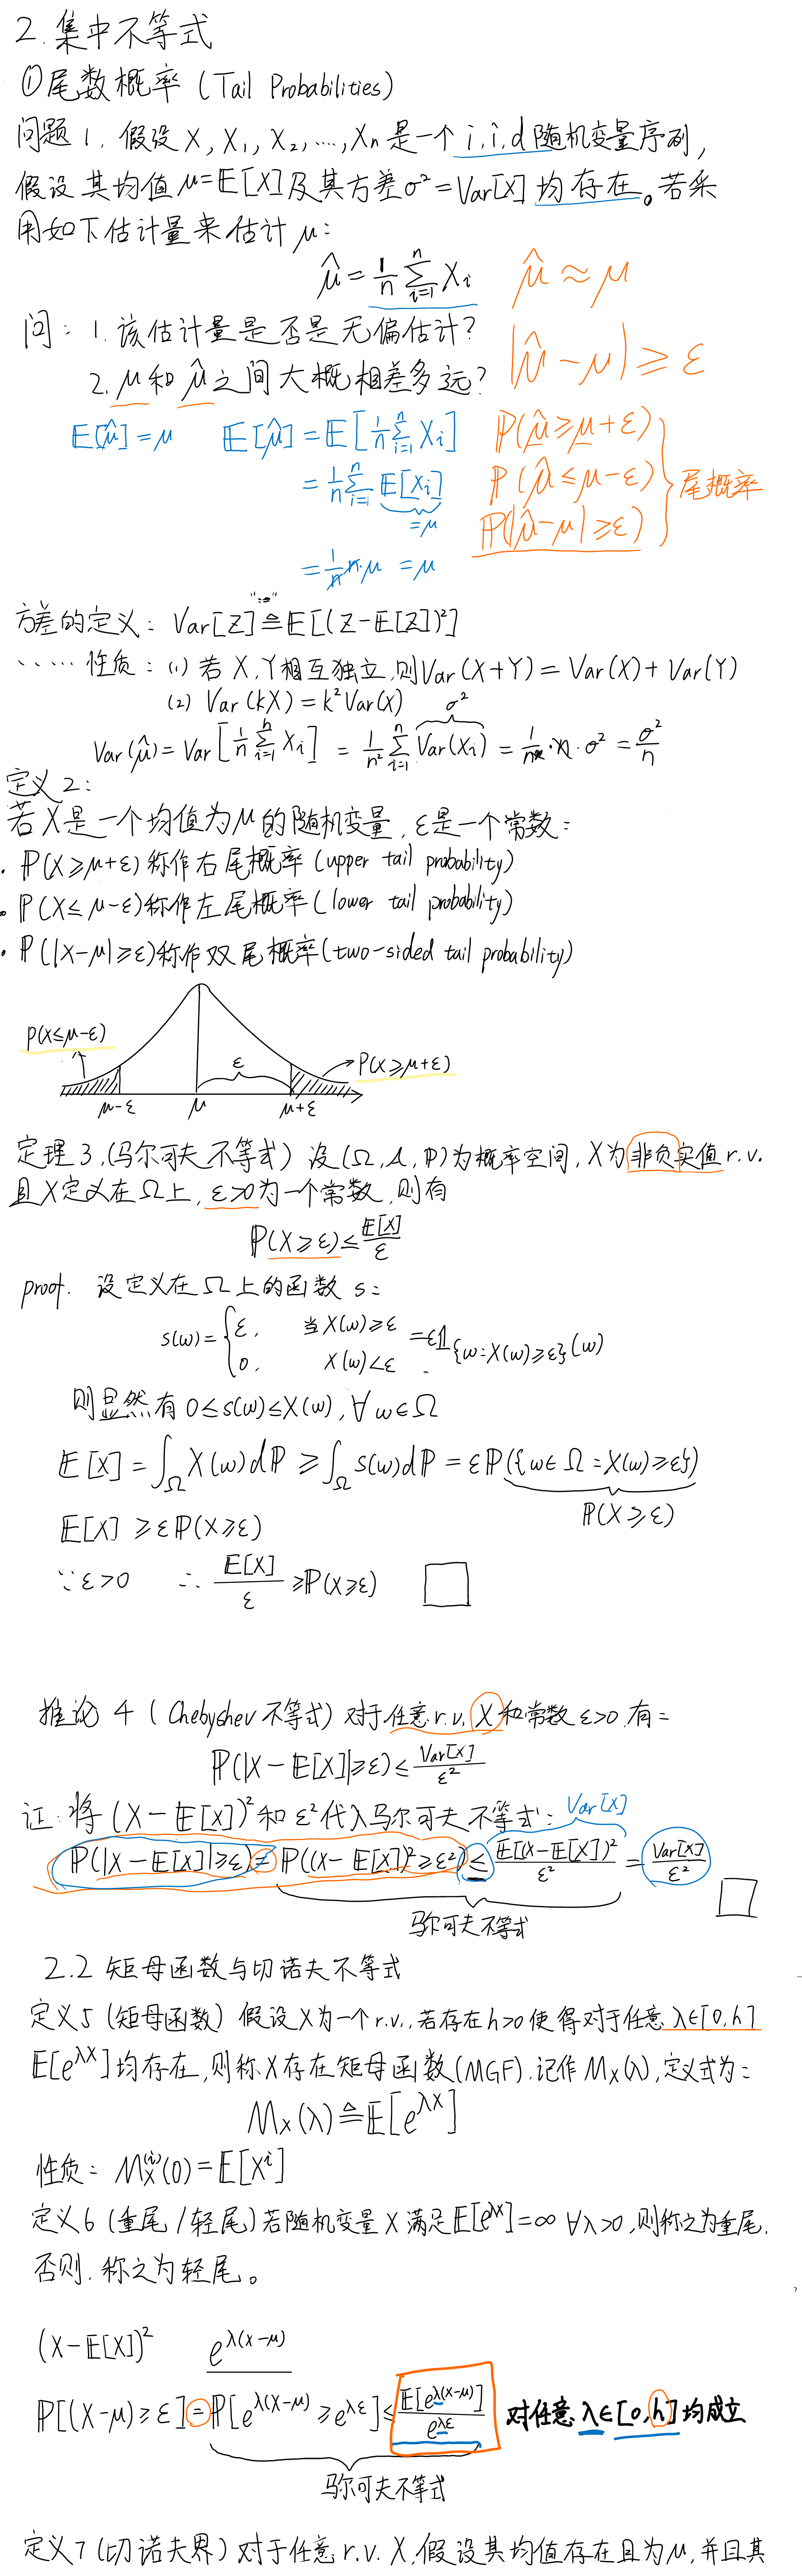 2. 集中不等式
①尾数概率 (Tail Probabilities)
问题 1. 假设 X, X₁, X₂, ..., Xn 是一个 i.i.d 随机变量序列,
假设其均值 μ=𝔼[X] 及其方差 σ²=Var[X] 均存在。若采
用如下估计量来估计 μ:
μ̂ = 1/n Σ_{i=1}^n Xi  μ̂ ≈ μ
问: 1. 该估计量是否是无偏估计?
2. μ 和 μ̂ 之间大概相差多远? |μ̂ - μ| ≥ ε
𝔼[μ̂] = μ  𝔼[μ̂] = 𝔼[1/n Σ_{i=1}^n Xi]  ℙ(μ̂ ≥ μ+ε)
= 1/n Σ_{i=1}^n 𝔼[Xi]  ℙ(μ̂ ≤ μ-ε) } 尾概率
=μ  ℙ(|μ̂-μ| ≥ ε)
= 1/n n·μ = μ
":="
方差的定义: Var[Z] ≙ 𝔼[(Z-𝔼[Z])²]
...... 性质: (1) 若 X, Y 相互独立, 则 Var(X+Y) = Var(X) + Var(Y)
(2) Var(kX) = k²Var(X)  σ²
Var(μ̂) = Var[1/n Σ_{i=1}^n Xi] = 1/n² Σ_{i=1}^n Var(Xi) = 1/n² · n · σ² = σ²/n
定义 2:
若 X 是一个均值为 μ 的随机变量, ε 是一个常数:
· ℙ(X ≥ μ+ε) 称作右尾概率 (upper tail probability)
· ℙ(X ≤ μ-ε) 称作左尾概率 (lower tail probability)
· ℙ(|X-μ| ≥ ε) 称作双尾概率 (two-sided tail probability)
P(X≤μ-ε)  ε  P(X≥μ+ε)
μ-ε  μ  μ+ε
定理 3. (马尔可夫不等式) 设 (Ω, A, ℙ) 为概率空间, X 为非负实值 r.v.
且 X 定义在 Ω 上, ε>0 为一个常数, 则有
ℙ(X ≥ ε) ≤ 𝔼[X]/ε
proof. 设定义在 Ω 上的函数 s:
s(ω) = { ε, 当 X(ω) ≥ ε = ε𝟙_{{ω:X(ω)≥ε}}(ω)
0, X(ω) < ε .
则显然有 0 ≤ s(ω) ≤ X(ω), ∀ω∈Ω
𝔼[X] = ∫_Ω X(ω)dℙ ≥ ∫_Ω s(ω)dℙ = εℙ({ω∈Ω : X(ω) ≥ ε})
𝔼[X] ≥ εℙ(X≥ε)  ℙ(X ≥ ε)
∵ ε>0 ∴ 𝔼[X]/ε ≥ ℙ(X≥ε) □
推论 4 (Chebyshev 不等式) 对于任意 r.v. X 和常数 ε>0 有:
ℙ(|X-𝔼[X]| ≥ ε) ≤ Var[X]/ε²
证: 将 (X-𝔼[X])² 和 ε² 代入马尔可夫不等式: Var[X]
ℙ(|X-𝔼[X]| ≥ ε) = ℙ((X-𝔼[X])² ≥ ε²) ≤ 𝔼[(X-𝔼[X])²/ε² = Var[X]/ε² □
马尔可夫不等式
2.2 矩母函数与切诺夫不等式
定义 5 (矩母函数) 假设 X 为一个 r.v., 若存在 h>0 使得对于任意 λ∈[0,h]
𝔼[e^{λX}] 均存在, 则称 X 存在矩母函数 (MGF). 记作 M_X(λ), 定义式为:
M_X(λ) ≙ 𝔼[e^{λX}]
性质: M_X^{(i)}(0) = 𝔼[X^i]
定义 6 (重尾 / 轻尾) 若随机变量 X 满足 𝔼[e^{λX}] = ∞ ∀λ>0, 则称之为重尾.
否则, 称之为轻尾。
(X-𝔼[X])²  e^{λ(X-μ)}
ℙ[(X-μ) ≥ ε] = ℙ[e^{λ(X-μ)} ≥ e^{λε}] ≤ 𝔼[e^{λ(X-μ)}]/e^{λε} 对任意 λ∈[0,h] 均成立
马尔可夫不等式
定义 7 (切诺夫界) 对于任意 r.v. X, 假设其均值存在且为 μ, 并且其